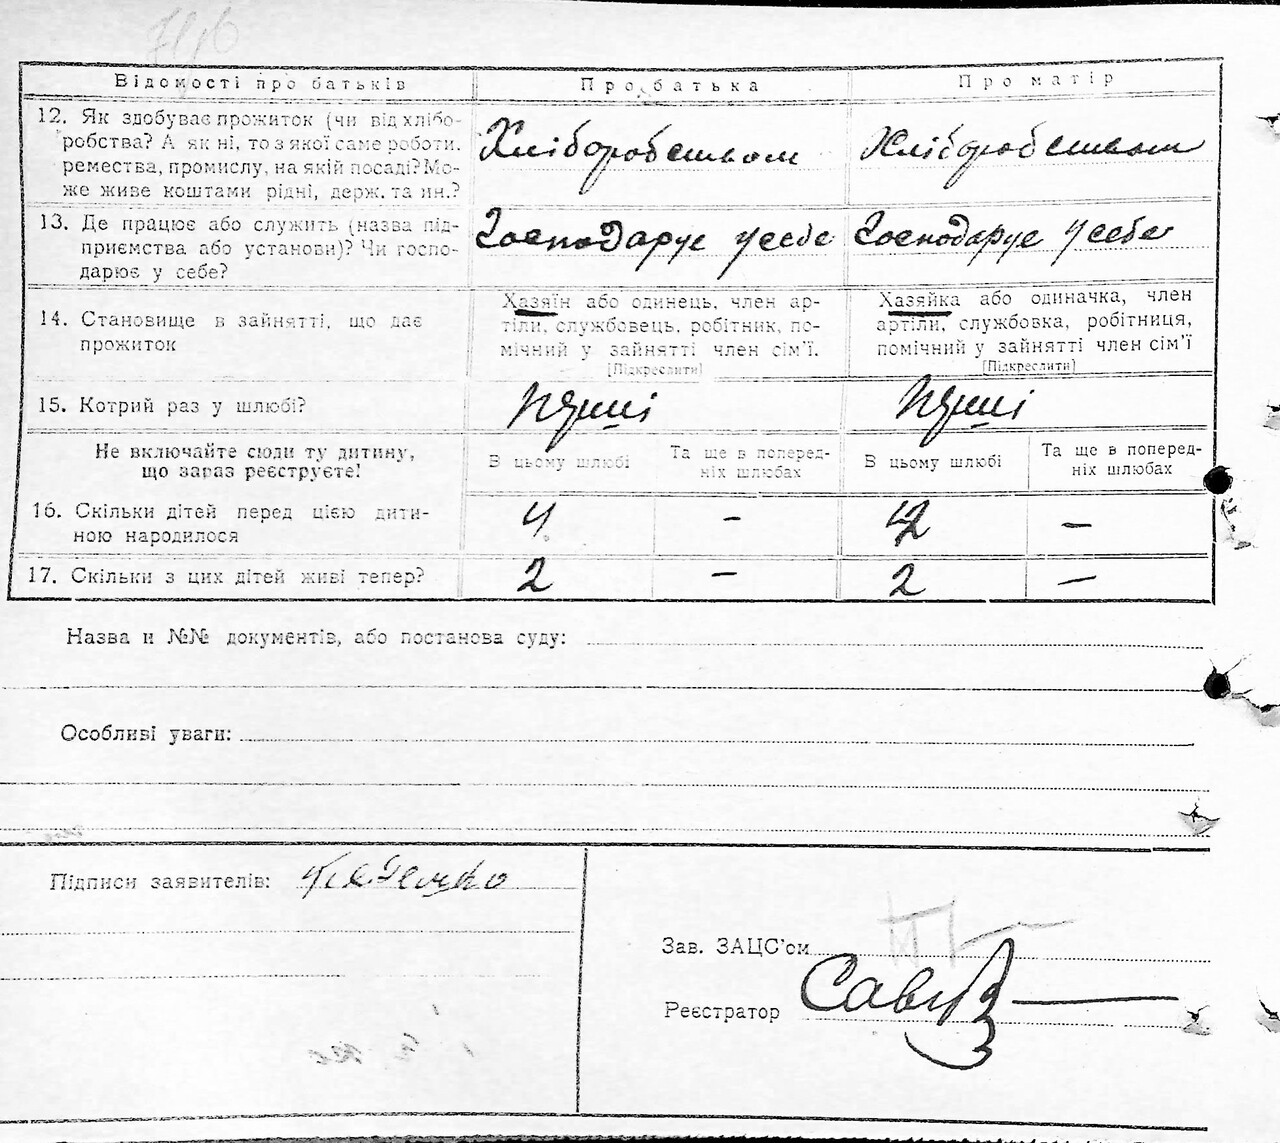 Відомості про батьків Про батька Про матір
12. Як здобуває прожиток (чи від хлібо-
робства? А як ні, то з якої саме роботи,
ремества, промислу, на якій посаді? Мо-
же живе коштами рідні, держ. та ин.?
Хліборобством Хліборобством
13. Де працює або служить (назва під-
приємства або установи)? Чи госпо-
дарює у себе?
Господарує у себе Господарує у себе
14. Становище в зайнятті, що дає
прожиток
Хазяїн або одинець, член ар-
тіли, службовець, робітник, по-
мічний у зайнятті член сім'ї.
[Підкреслити]
Хазяйка або одиначка, член
артіли, службовка, робітниця,
помічний у зайнятті член сім'ї
[Підкреслити]
15. Котрий раз у шлюбі?
Не включайте сюди ту дитину,
що зараз реєструєте!
В цьому шлюбі
Та ще в поперед-
ніх шлюбах
В цьому шлюбі
Та ще в поперед-
ніх шлюбах
16. Скільки дітей перед цією дити-
ною народилося
4 – –
17. Скільки з цих дітей живі тепер? 2 – 2 –
Назва и №№ документів, або постанова суду:
Особливі уваги:
Підписи заявителів:
Зав. ЗАЦС'ом
Реєстратор